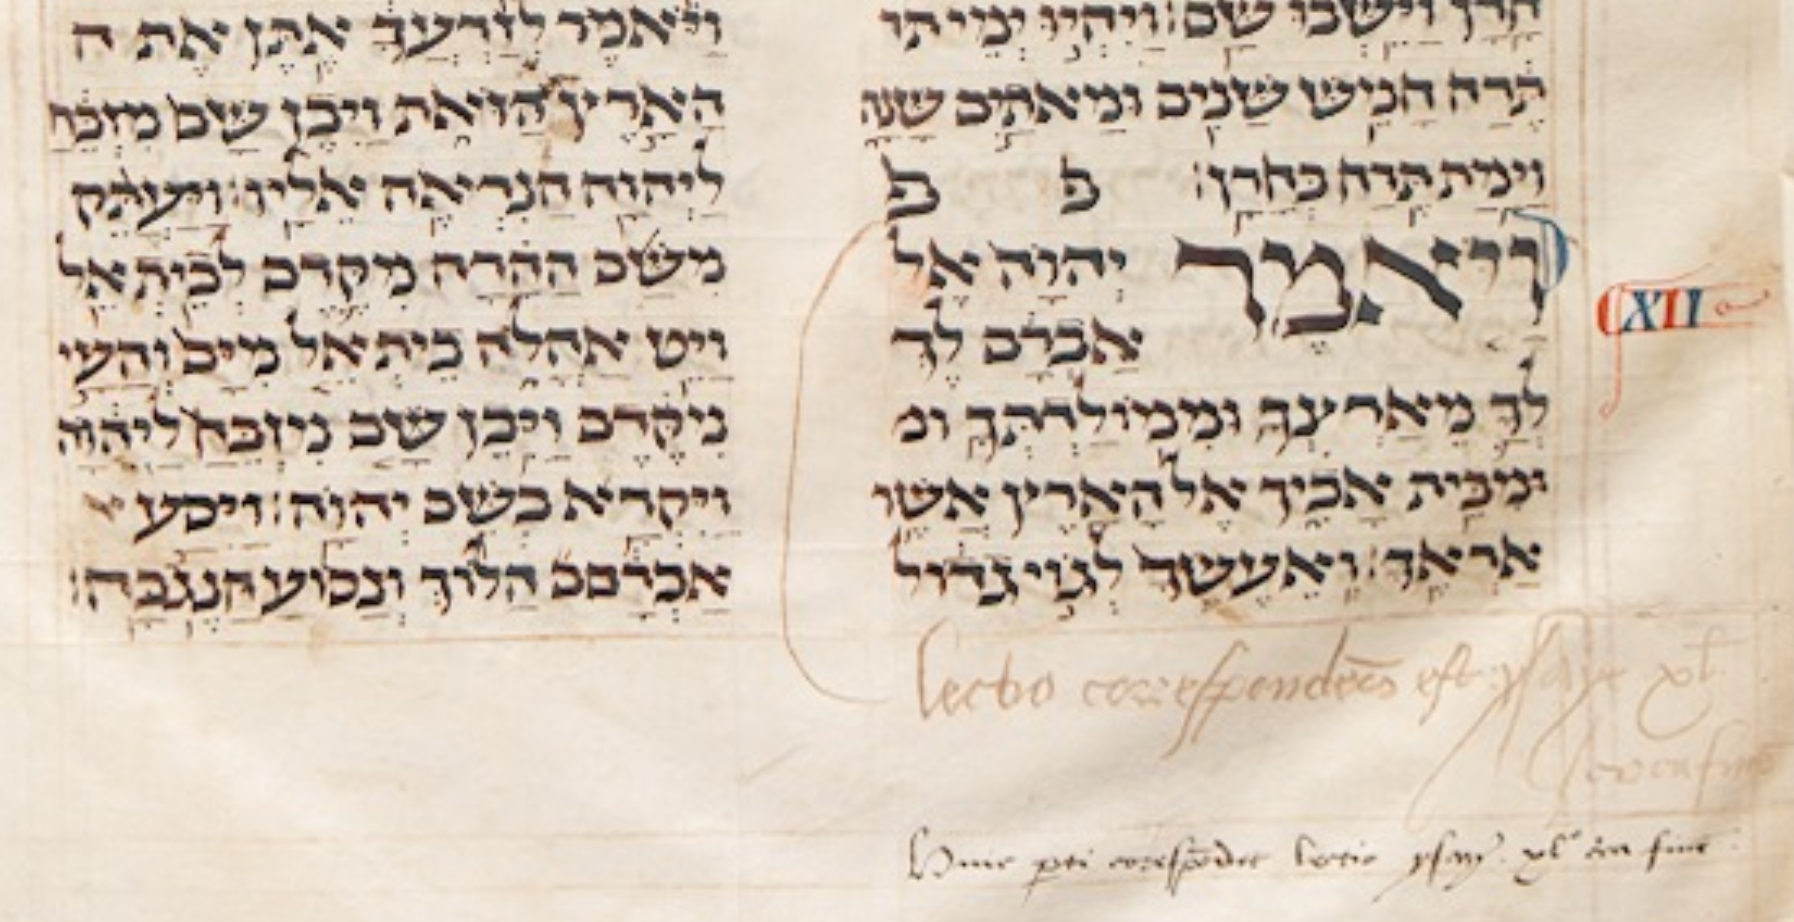 חָרָן וַיֵּשְׁבוּ שָׁם׃ וַיִּהְיוּ יְמֵי תר
תֶרַח חָמֵשׁ שָׁנִים וּמָאתַיִם שָׁנָה
וַיָּמָת תֶּרַח בְּחָרָן׃ פ פ
וַיֹּאמֶר יְהוָה אֶל
אַבְרָם לֶךְ
לְךָ מֵאַרְצְךָ וּמִמּוֹלַדְתְּךָ ומ
וּמִבֵּית אָבִיךָ אֶל הָאָרֶץ אֲשֶׁר
אַרְאֶךָּ׃ וְאֶעֶשְׂךָ לְגוֹי גָּדוֹל
וַיֹּאמֶר לְזַרְעֲךָ אֶתֵּן אֶת ה
הָאָרֶץ הַזֹּאת וַיִּבֶן שָׁם מִזְבֵּחַ
לַיהוָה הַנִּרְאֶה אֵלָיו׃ וַיַּעְתֵּק
מִשָּׁם הָהָרָה מִקֶּדֶם לְבֵית אֵל
וַיֵּט אָהֳלֹה בֵּית אֵל מִיָּם וְהָעַי
מִקֶּדֶם וַיִּבֶן שָׁם מִזְבֵּחַ לַיהוָה
וַיִּקְרָא בְּשֵׁם יְהוָה׃ וַיִּסַּע א
אַבְרָם הָלוֹךְ וְנָסוֹעַ הַנֶּגְבָּה׃
XII
lectio correspondēs est ysaye xl.
circa finē
Huic pti corespōdet lectio ysay. xlº cca finē.